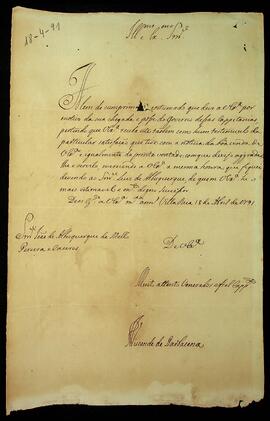 18-4-91
Illmo e Exmo Snr.
Alem do cumprimento costumado que devo a V. Exa. por
motivo da sua chegada, e posse do Governo dessas Capitanias
pertendo que V. Exa. receba esta tambem como hum testemunho da
particular satisfação que tive com a noticia da boa vinda de
V. Exa. e igualmente da prompta vontade, com que dezejo agradar
lhe e servilo merecendo a V. Exa. a mesma honra, que fiquei
devendo ao Snr. Luiz de Albuquerque de quem V. Exa. he
o mais estimavel e digno sucessor.
Deos Gde. a V. Exa. ms. ans. Villa Rica 18 de Abril de 1791
Snr. João de Albuquerque de Mello
Pereira e Caceres
De V. Exa.
Muito attento Venerador e fiel
Visconde de Barbacena